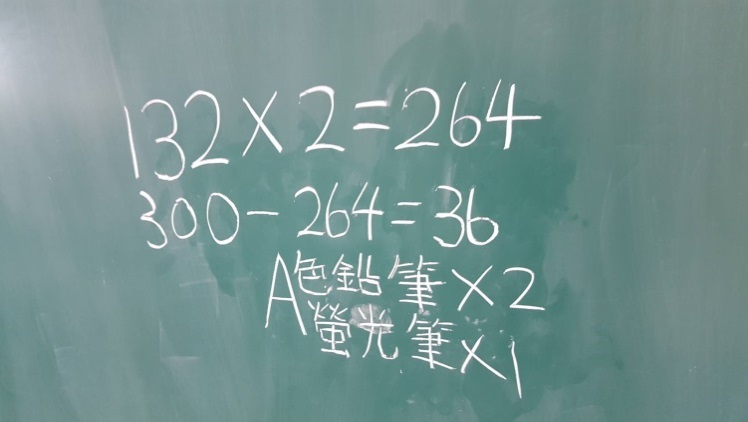 132×2=264
300-264=36
A色鉛筆×2
螢光筆×1